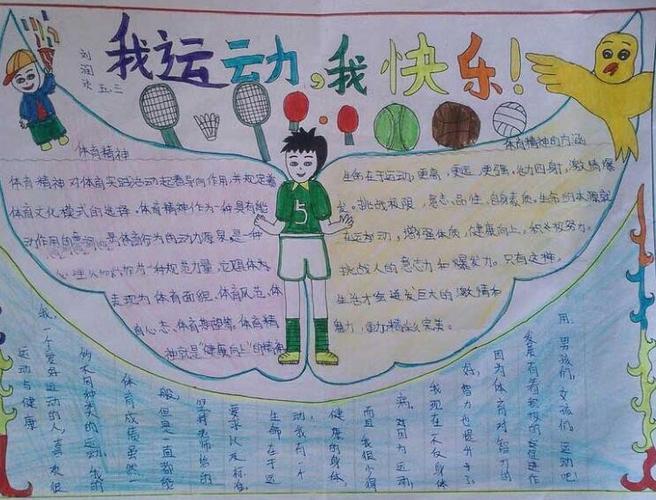 我运动,我快乐!
刘润
五.三
体育精神
体育精神对体育实践活动起着导向作用,并规定着
体育文化模式的选择。体育精神作为一种具有能
动作用的意识,是体育行为的动力源泉,是一种
心理 作为一种规范力量,它题体为
表现为体育面貌、体育风范、体
育心态、体育期望等。体育精
神就是"健康向上"的精神
体育精神的内涵
生命在于运动,更高,更远,更强,活力四射,激情爆
发。挑战极限,意志、品性,自身素质,生命的本源就
在运动,增强体质,健康向上,积极努力。
挑战人的意志力和爆发力。只有这样,
生活才会迸发巨大的激情和
魅力,更加精彩完美。
5
运动与健康
我,一个爱好运动的人,喜欢很
多不同种类的运动。我的
体育成绩虽然一
般,但是一直都能
坚持老师给的
要求以及标准。
生命在于运
动,我有一个
健康的身体,
而且我很少得
病。就因为运动,
我现在不仅身体
好,智力也提升了。
因为体育对智力的
发展有着积极的促进作
用。男孩们,女孩们,运动吧!